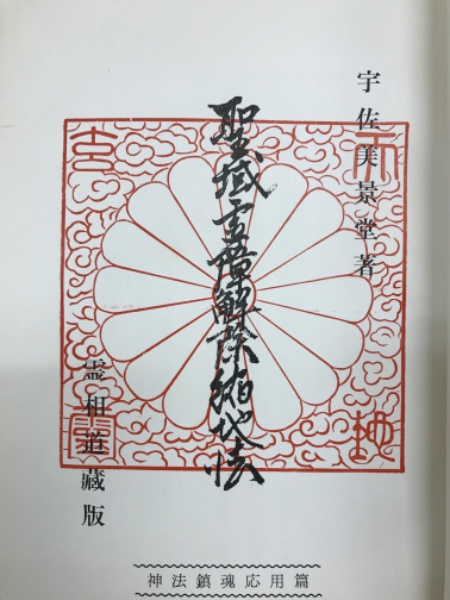 宇佐美景堂著
聖域霊障解除縮地法
霊相道藏版
神法鎮魂応用篇